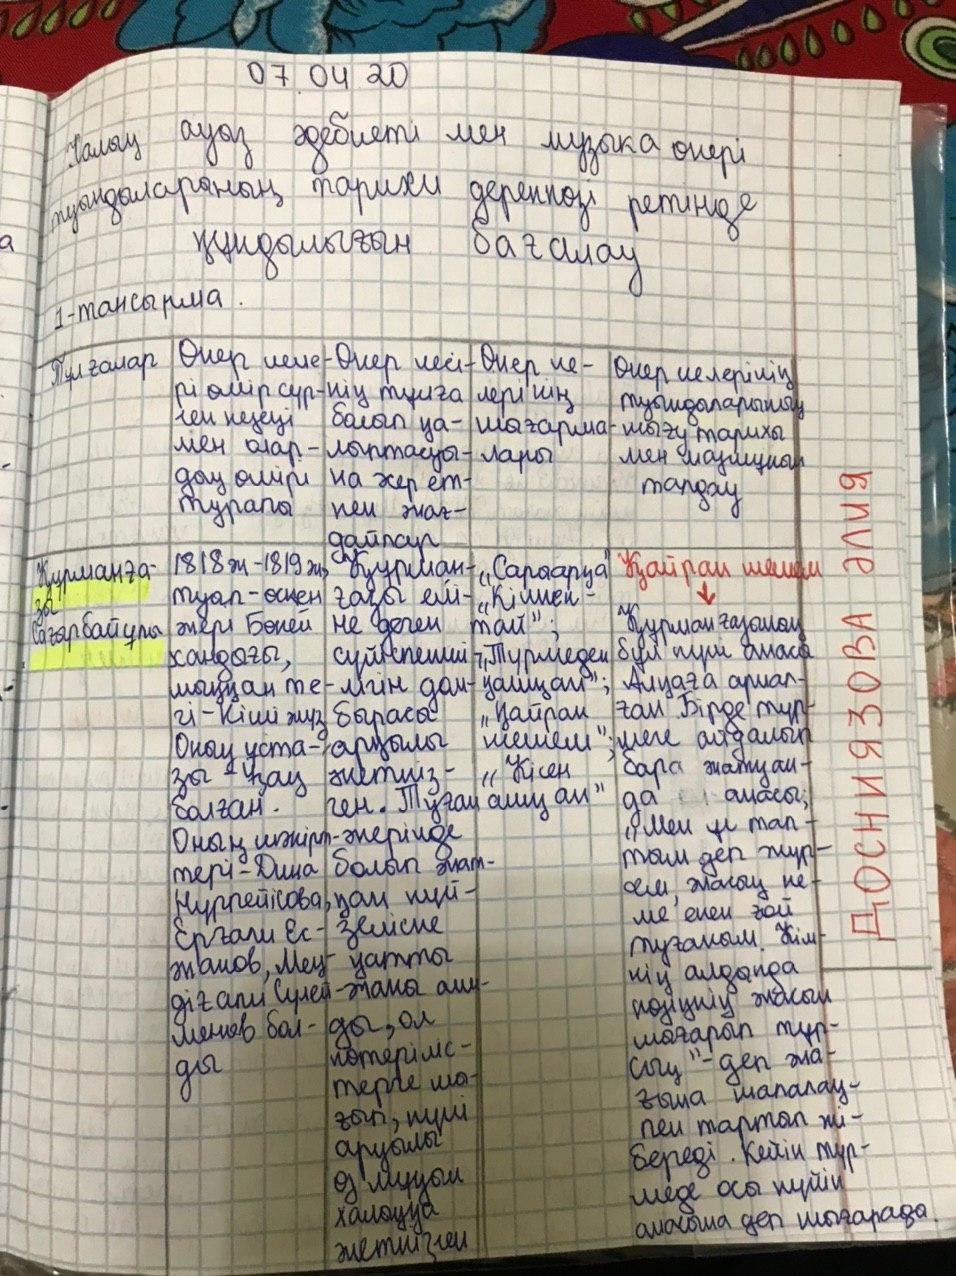 07.04.20
Халық ауыз әдебиеті мен музыка өнері
туындыларының тарихи дереккөзі ретінде
құндылығын бағалау
1-тапсырма.
Тұлғалар
Өнер иеле-
рі өмір сүр-
ген кезеңі
мен олар-
дың өмірі
туралы
Өнер иесі-
нің тұлға
болып қа-
лыптасуы-
на әсер ет-
кен жағ-
дайлар
Өнер ие-
лерінің
шығарма-
лары
Өнер иелерінің
туындыларының
шығу тарихы
мен мазмұнын
талдау
Құрманға-
зы
Сағырбайұлы
1818ж-1819ж,
туып-өскен
жері Бөкей
хандығы,
шыққан те-
гі-Кіші жүз
Оның ұста-
зы Ұзақ
болған.
Оның шәкірт-
тері-Дина
Нүрпейісова,
Ерғали Ес-
жанов, Мең-
діғали Сүлей-
менов бол-
ды
Құрман-
ғазы елі-
не деген
сүйіспенші-
лігін дом-
бырасы
арқылы
жеткіз-
ген. Туған
жерінде
болып жат-
қан күй-
зеліске
қатты
жаны ашы-
ды, ол
көтеріліс-
терге шы-
ғып, күйі
арқылы
өз мұңын
халыққа
жеткізген
„Сарыарқа"
„Кішкен-
тай";
„Түрмеден
қашқан";
„Қайран
шешем";
„Кісен
ашқан"
Қайран шешем
↓
Құрманғазының
бұл күйі анасы
Алқаға арнал-
ған. Бірде түр-
меге айдалып
бара жатқан-
да анасы,
„Мен ұл тап-
тым деп жүр-
сем, жасық не-
ме екен ғой
туғаным. Кім-
нің алдында
көзіңнің жасын
шығарып тұр-
сың"-деп жа-
ғына шапалақ-
пен тартып жі-
береді. Кейін түр-
меде осы күйін
анасына деп шығарады.
ДОСНИЯЗОВА ӘЛИЯ
а